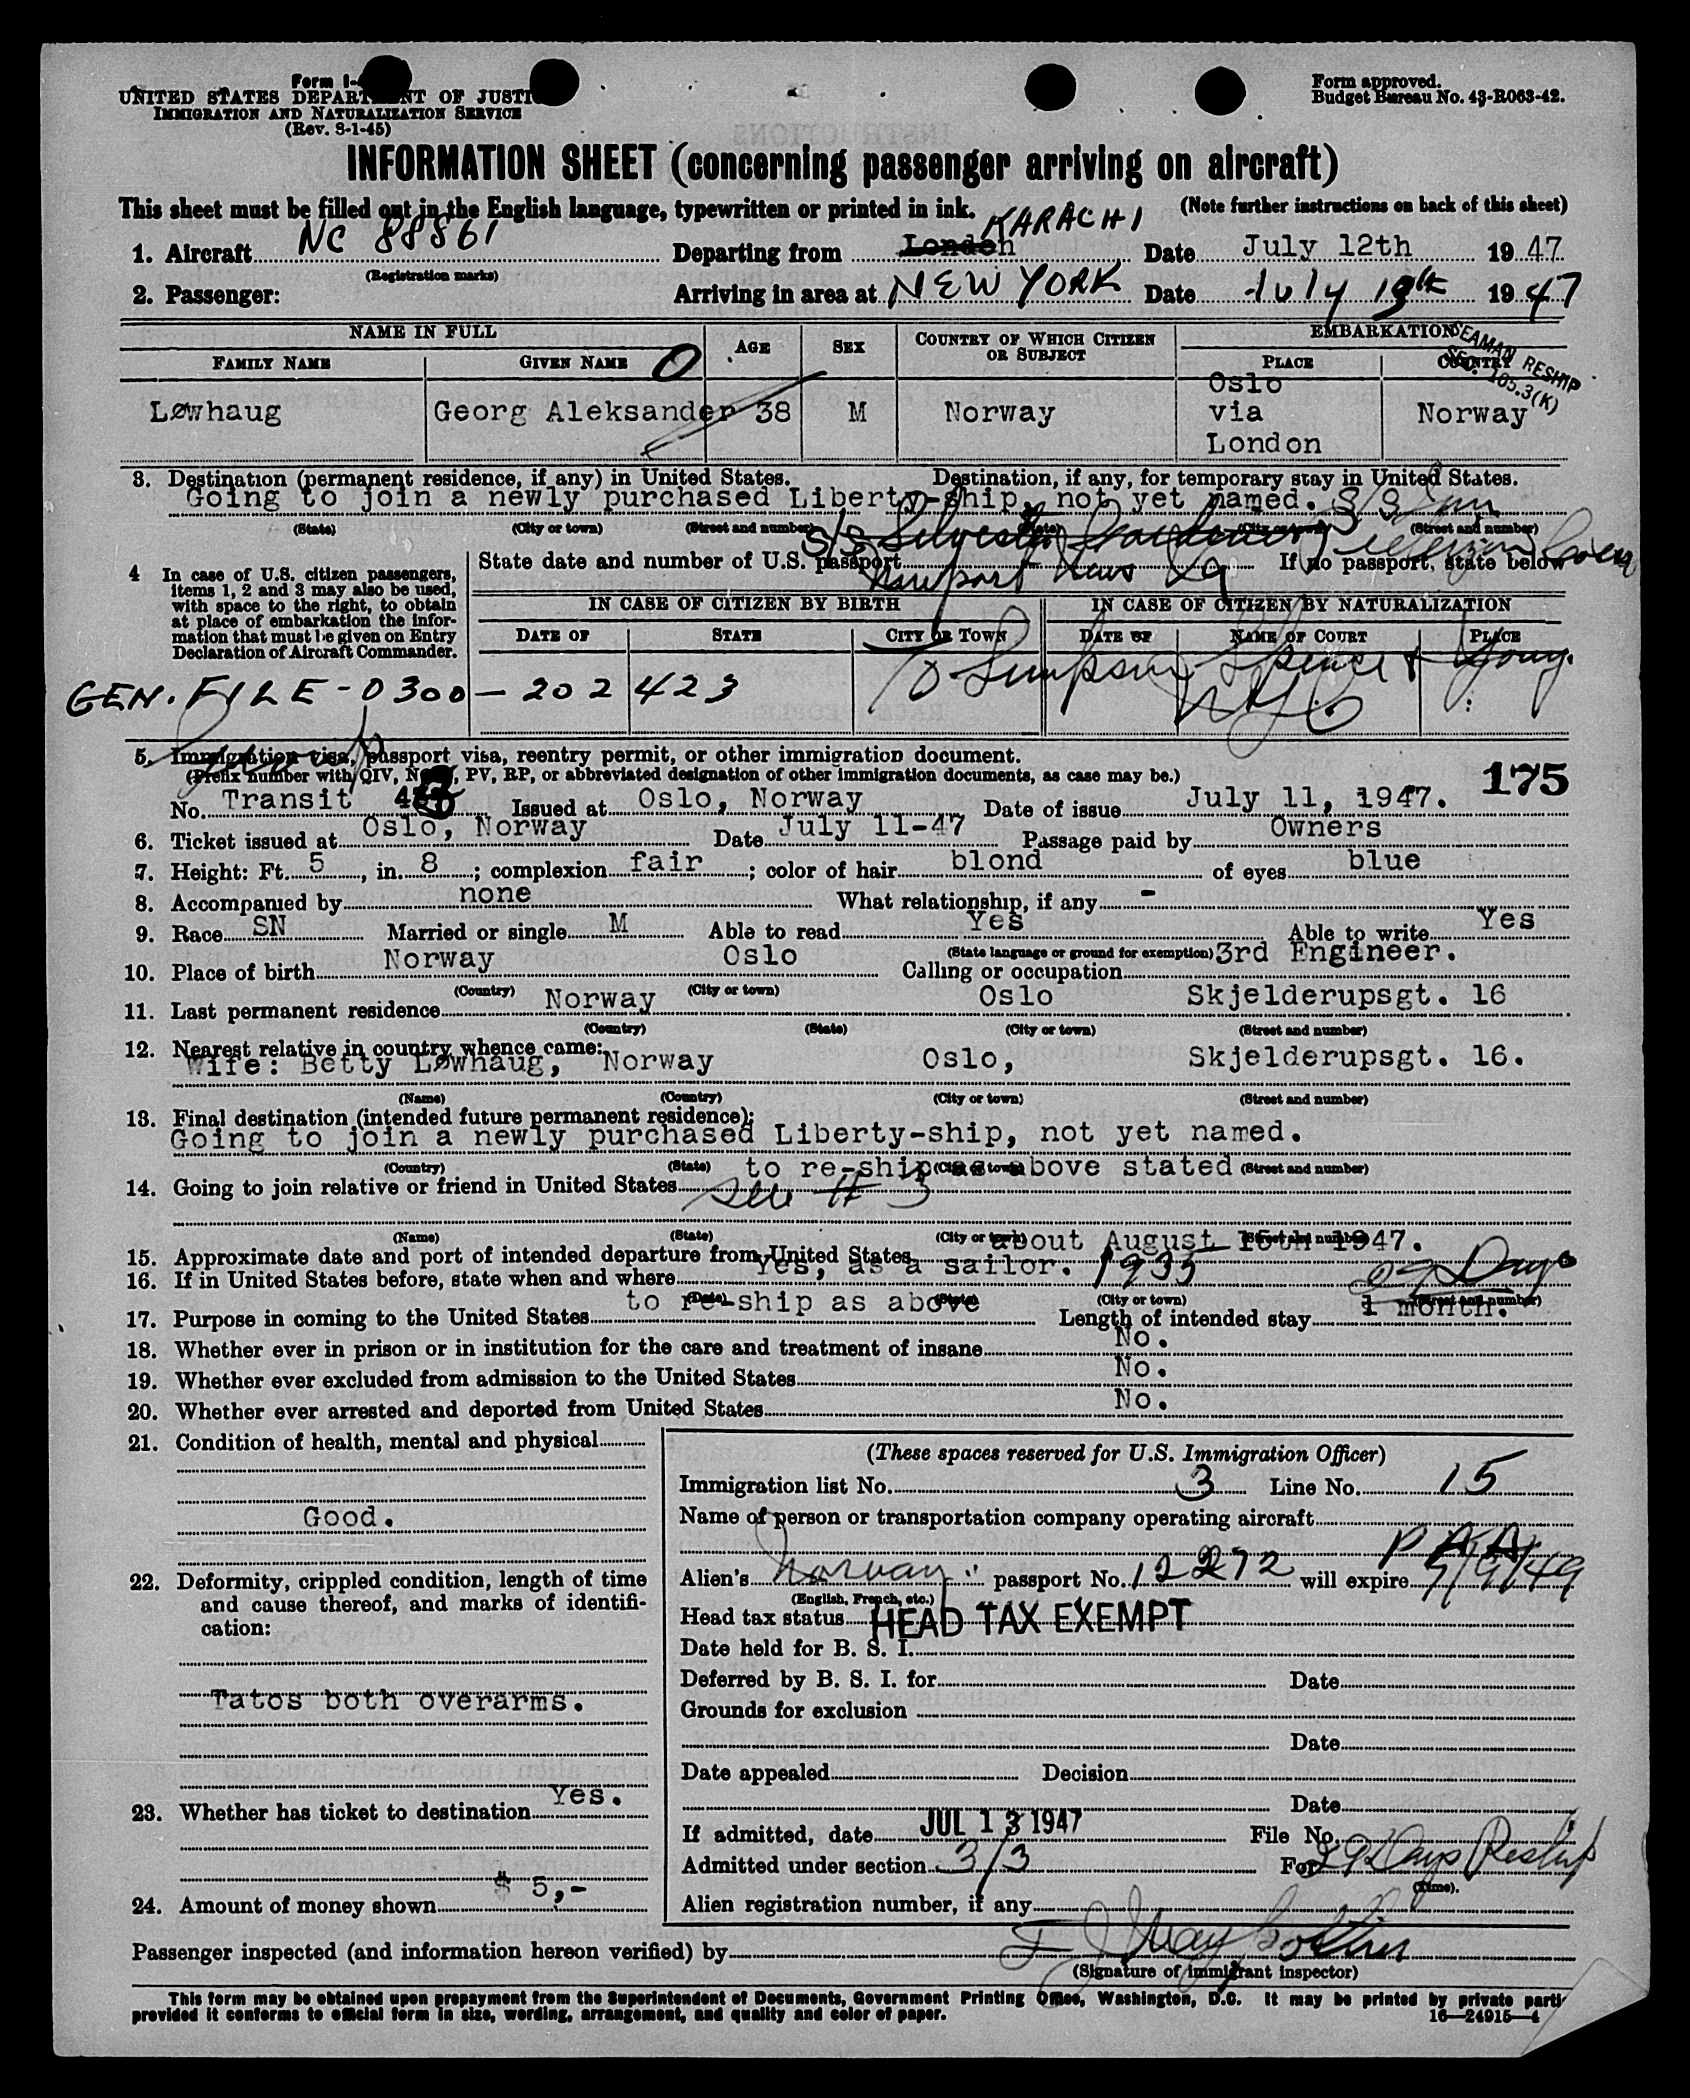 Form I-
UNITED STATES DEPARTMENT OF JUSTI
IMMIGRATION AND NATURALIZATION SERVICE
(Rev. 8-1-45)
Form approved.
Budget Bureau No. 43-R063-42.
INFORMATION SHEET (concerning passenger arriving on aircraft)
This sheet must be filled out in the English language, typewritten or printed in ink. (Note further instructions on back of this sheet)
KARACHI
1. Aircraft NC 88861 Departing from London Date July 12th 1947
(Registration marks)
2. Passenger: Arriving in area at NEW YORK Date July 13th 1947
NAME IN FULL AGE SEX COUNTRY OF WHICH CITIZEN OR SUBJECT EMBARKATION
FAMILY NAME GIVEN NAME PLACE COUNTRY
SEAMAN RESHIP
SEC. 105.3(K)
Løwhaug Georg Aleksander 38 M Norway Oslo via London Norway
3. Destination (permanent residence, if any) in United States. Destination, if any, for temporary stay in United States.
Going to join a newly purchased Liberty-ship, not yet named.
(State) (City or town) (Street and number) (State) (City or town) (Street and number)
Newport News Va
4 In case of U.S. citizen passengers, items 1, 2 and 3 may also be used, with space to the right, to obtain at place of embarkation the information that must be given on Entry Declaration of Aircraft Commander.
State date and number of U.S. passport If no passport, state below
IN CASE OF CITIZEN BY BIRTH IN CASE OF CITIZEN BY NATURALIZATION
DATE OF STATE CITY OR TOWN DATE OF NAME OF COURT PLACE
℅ Simpson Spence & Young.
NYC
GEN. FILE - 0300 - 202423
5. Immigration visa, passport visa, reentry permit, or other immigration document.
(Prefix number with QIV, N, PV, RP, or abbreviated designation of other immigration documents, as case may be.)
175
No. Transit Issued at Oslo, Norway Date of issue July 11, 1947.
6. Ticket issued at Oslo, Norway Date July 11-47 Passage paid by Owners
7. Height: Ft. 5, in. 8; complexion fair; color of hair blond of eyes blue
8. Accompanied by none What relationship, if any -
9. Race SN Married or single M Able to read Yes Able to write Yes
(State language or ground for exemption)
10. Place of birth Norway Oslo Calling or occupation 3rd Engineer.
(Country) (City or town)
11. Last permanent residence Norway Oslo Skjelderupsgt. 16
(Country) (State) (City or town) (Street and number)
12. Nearest relative in country whence came:
Wife: Betty Løwhaug, Norway Oslo, Skjelderupsgt. 16.
(Name) (Country) (City or town) (Street and number)
13. Final destination (intended future permanent residence):
Going to join a newly purchased Liberty-ship, not yet named.
(Country) (State) (City or town) (Street and number)
to re-ship as above stated
14. Going to join relative or friend in United States see # 3
(Name) (State) (City or town) (Street and number)
15. Approximate date and port of intended departure from United States about August 15th 1947.
16. If in United States before, state when and where Yes, as a sailor. 1935
(Date) (State) (City or town) (Street and number)
29 Days
17. Purpose in coming to the United States to re-ship as above Length of intended stay 1 month.
18. Whether ever in prison or in institution for the care and treatment of insane No.
19. Whether ever excluded from admission to the United States No.
20. Whether ever arrested and deported from United States No.
21. Condition of health, mental and physical
Good.
22. Deformity, crippled condition, length of time and cause thereof, and marks of identification:
Tatos both overarms.
23. Whether has ticket to destination Yes.
24. Amount of money shown $ 5,-
(These spaces reserved for U.S. Immigration Officer)
Immigration list No. 3 Line No. 15
Name of person or transportation company operating aircraft
P A A
Alien's Norway passport No. 12272 will expire 7/9/49
(English, French, etc.)
Head tax status HEAD TAX EXEMPT
Date held for B. S. I.
Deferred by B. S. I. for Date
Grounds for exclusion
Date
Date appealed Decision
Date
If admitted, date JUL 13 1947 File No.
Admitted under section 3/3 For 29 Days Reship
(Time).
Alien registration number, if any
Passenger inspected (and information hereon verified) by
(Signature of immigrant inspector)
This form may be obtained upon prepayment from the Superintendent of Documents, Government Printing Office, Washington, D.C. It may be printed by private parti
provided it conforms to official form in size, wording, arrangement, and quality and color of paper. 16—24915—4